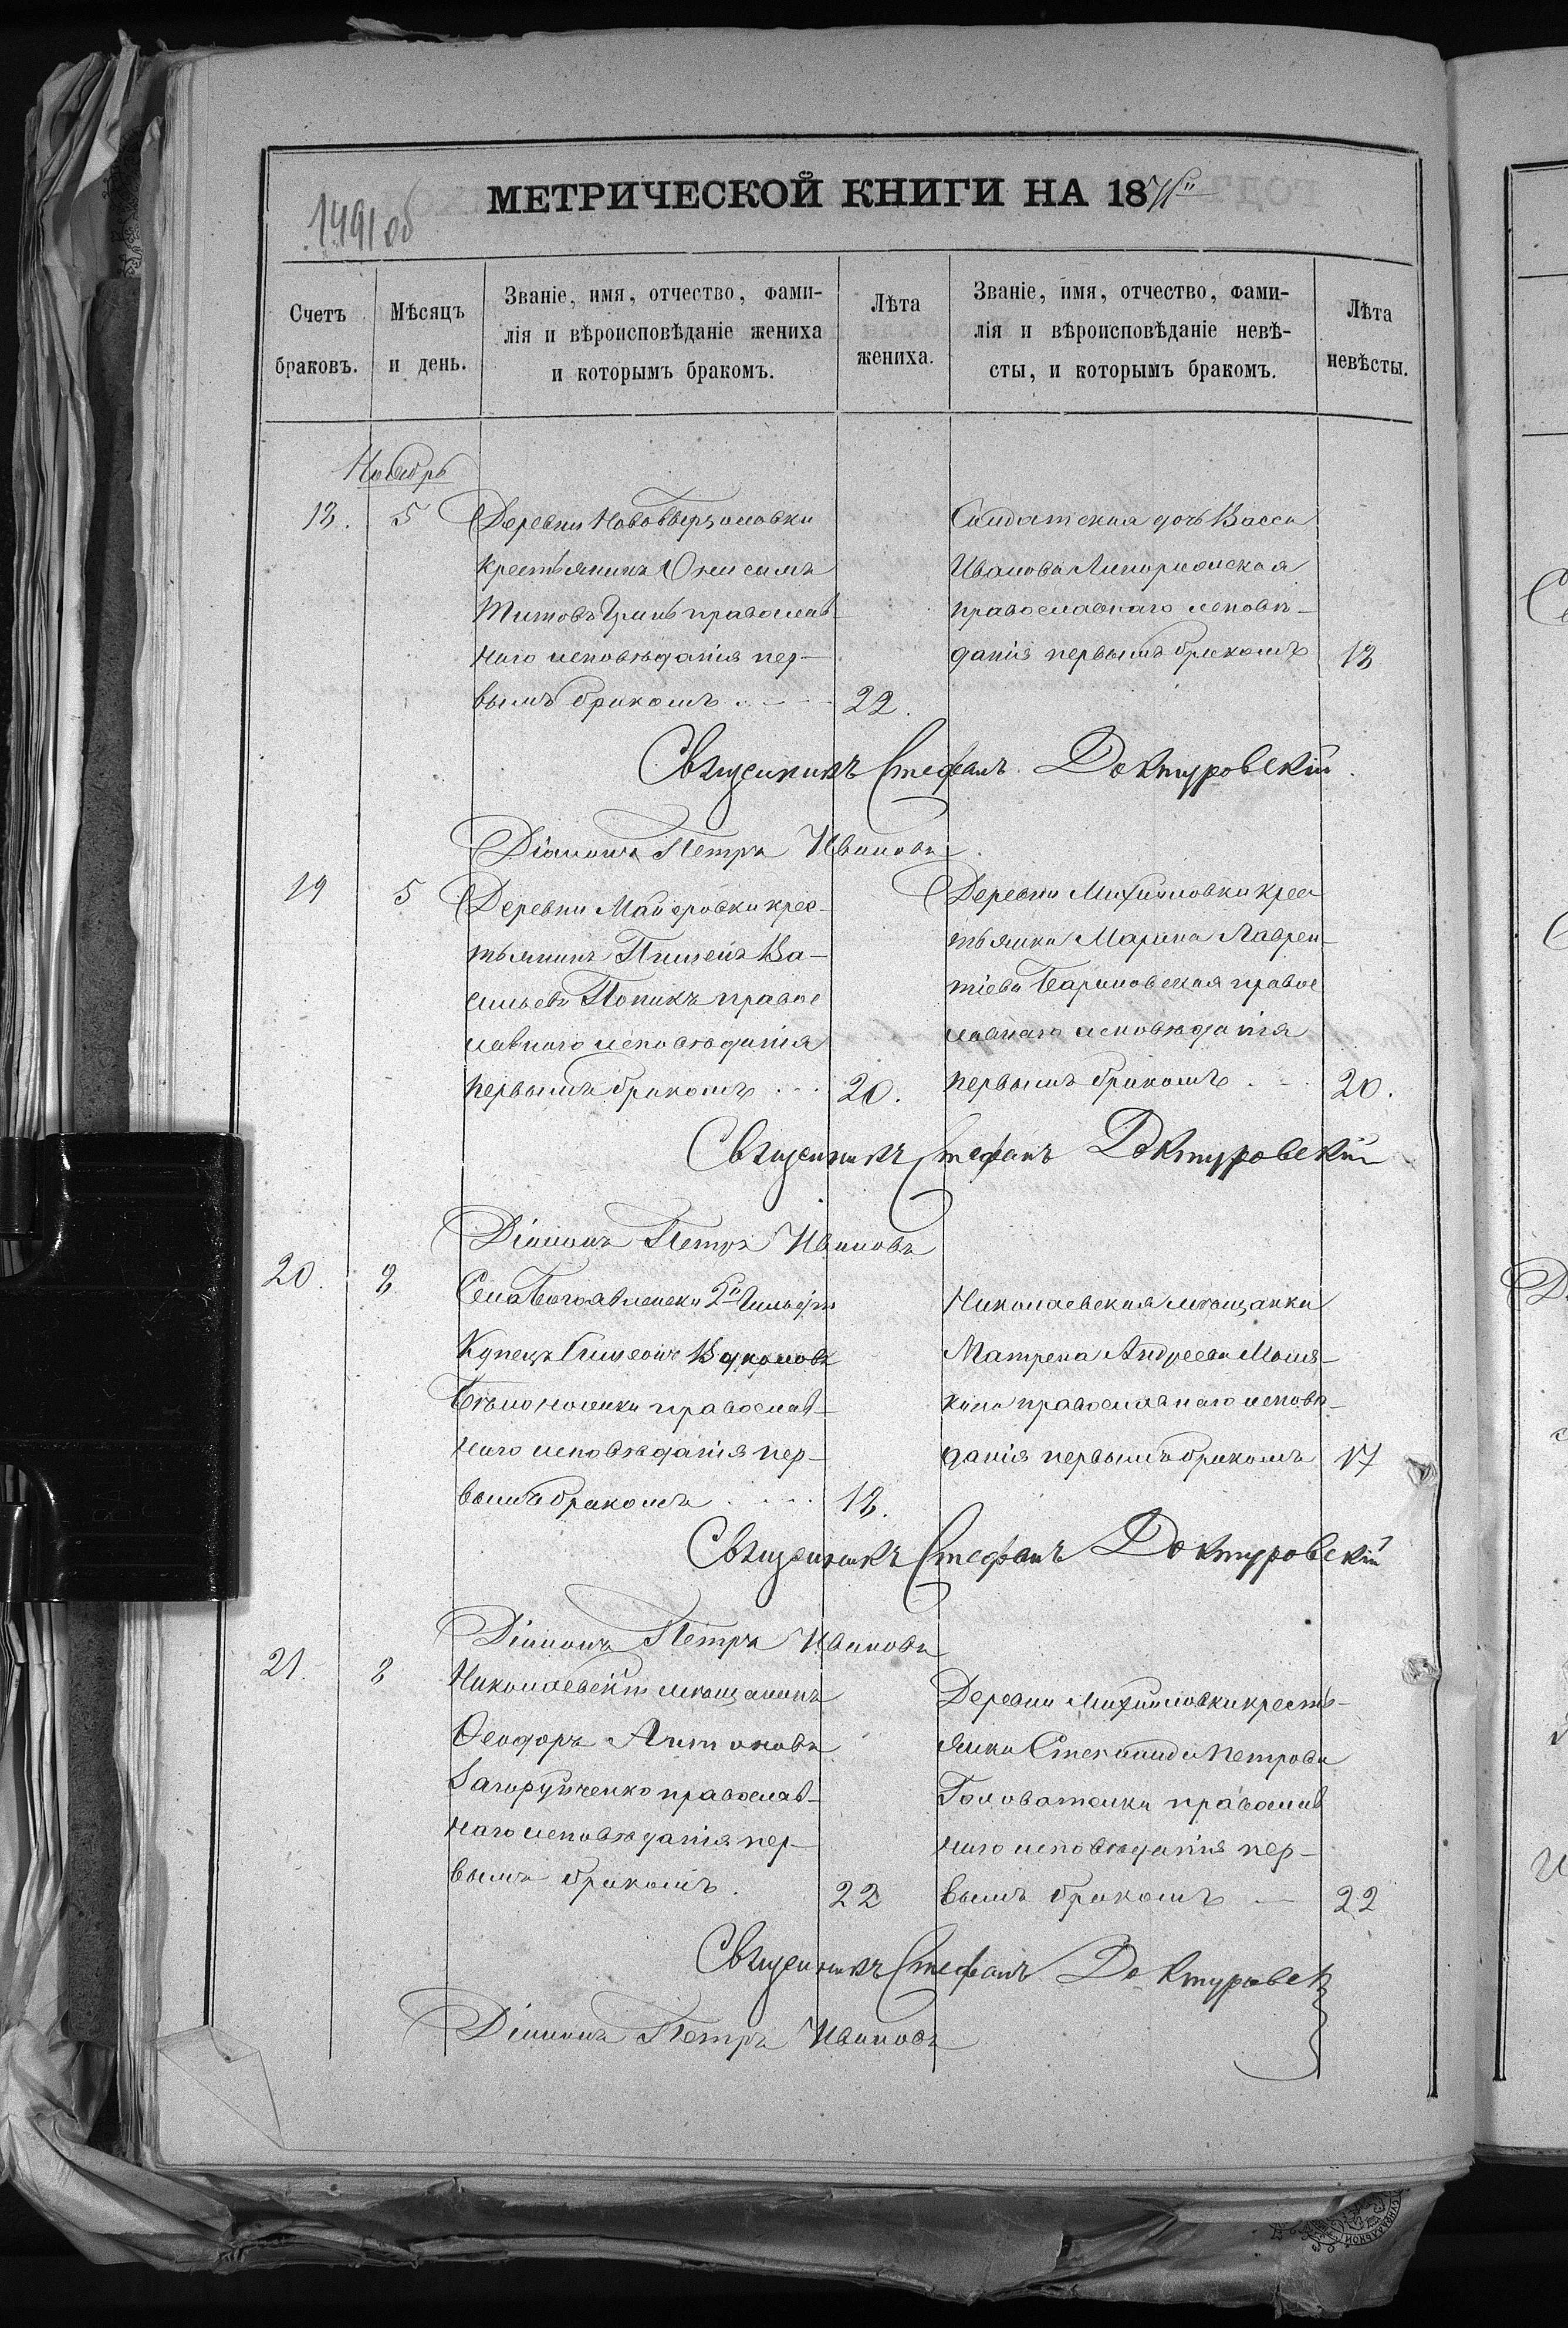 МЕТРИЧЕСКОЙ КНИГИ НА 18
1491 об
Счетъ браковъ.
Мѣсяцъ и день.
Званіе, имя, отчество, фами-
лія и вѣроисповѣданіе жениха
и которымъ бракомъ.
Лѣта жениха.
Званіе, имя, отчество, фами-
лія и вѣроисповѣданіе невѣ-
сты, и которымъ бракомъ.
Лѣта невѣсты.
Ноябрь
18. 5
Деревни
крестьянинъ Онисимъ
Титовъ Гринь православ-
наго исповѣданія пер-
вымъ бракомъ 22.
Солдатская дочь Васса
Иванова
православнаго исповѣ-
данія первымъ бракомъ 18
Священникъ Стефанъ Доктуровскій.
Діаконъ Петръ Ивановъ.
19 5
Деревни Майеровки крес-
тьянинъ Пимень Ва-
сильевъ Попикъ правос
лавнаго исповѣданія
первымъ бракомъ 20.
Деревни Михайловки крес
тьянка Марина Лаврен-
тіева Бариновская правос
лавнаго исповѣданія
первымъ бракомъ 20.
Священникъ Стефанъ Доктуровскій
Діаконъ Петръ Ивановъ
20. 8
Села Богоявленска 2й Гильдіи
Купецъ Симеонъ
православ-
наго исповѣданія пер-
вымъ бракомъ 18.
Николаевская мѣщанка
Матрена Андреева
православнаго исповѣ-
данія первымъ бракомъ 17
Священникъ Стефанъ Доктуровскій
Діаконъ Петръ Ивановъ
21. 8
Николаевскій мѣщанинъ
Ѳеодоръ Антоновъ
Загоруйченко православ-
наго исповѣданія пер-
вымъ бракомъ. 22
Деревни Михайловки кресть-
янка Степанида Петрова
Головатенко православ
наго исповѣданія пер-
вымъ бракомъ 22
Священникъ Стефанъ Доктуровск
Діаконъ Петръ Ивановъ